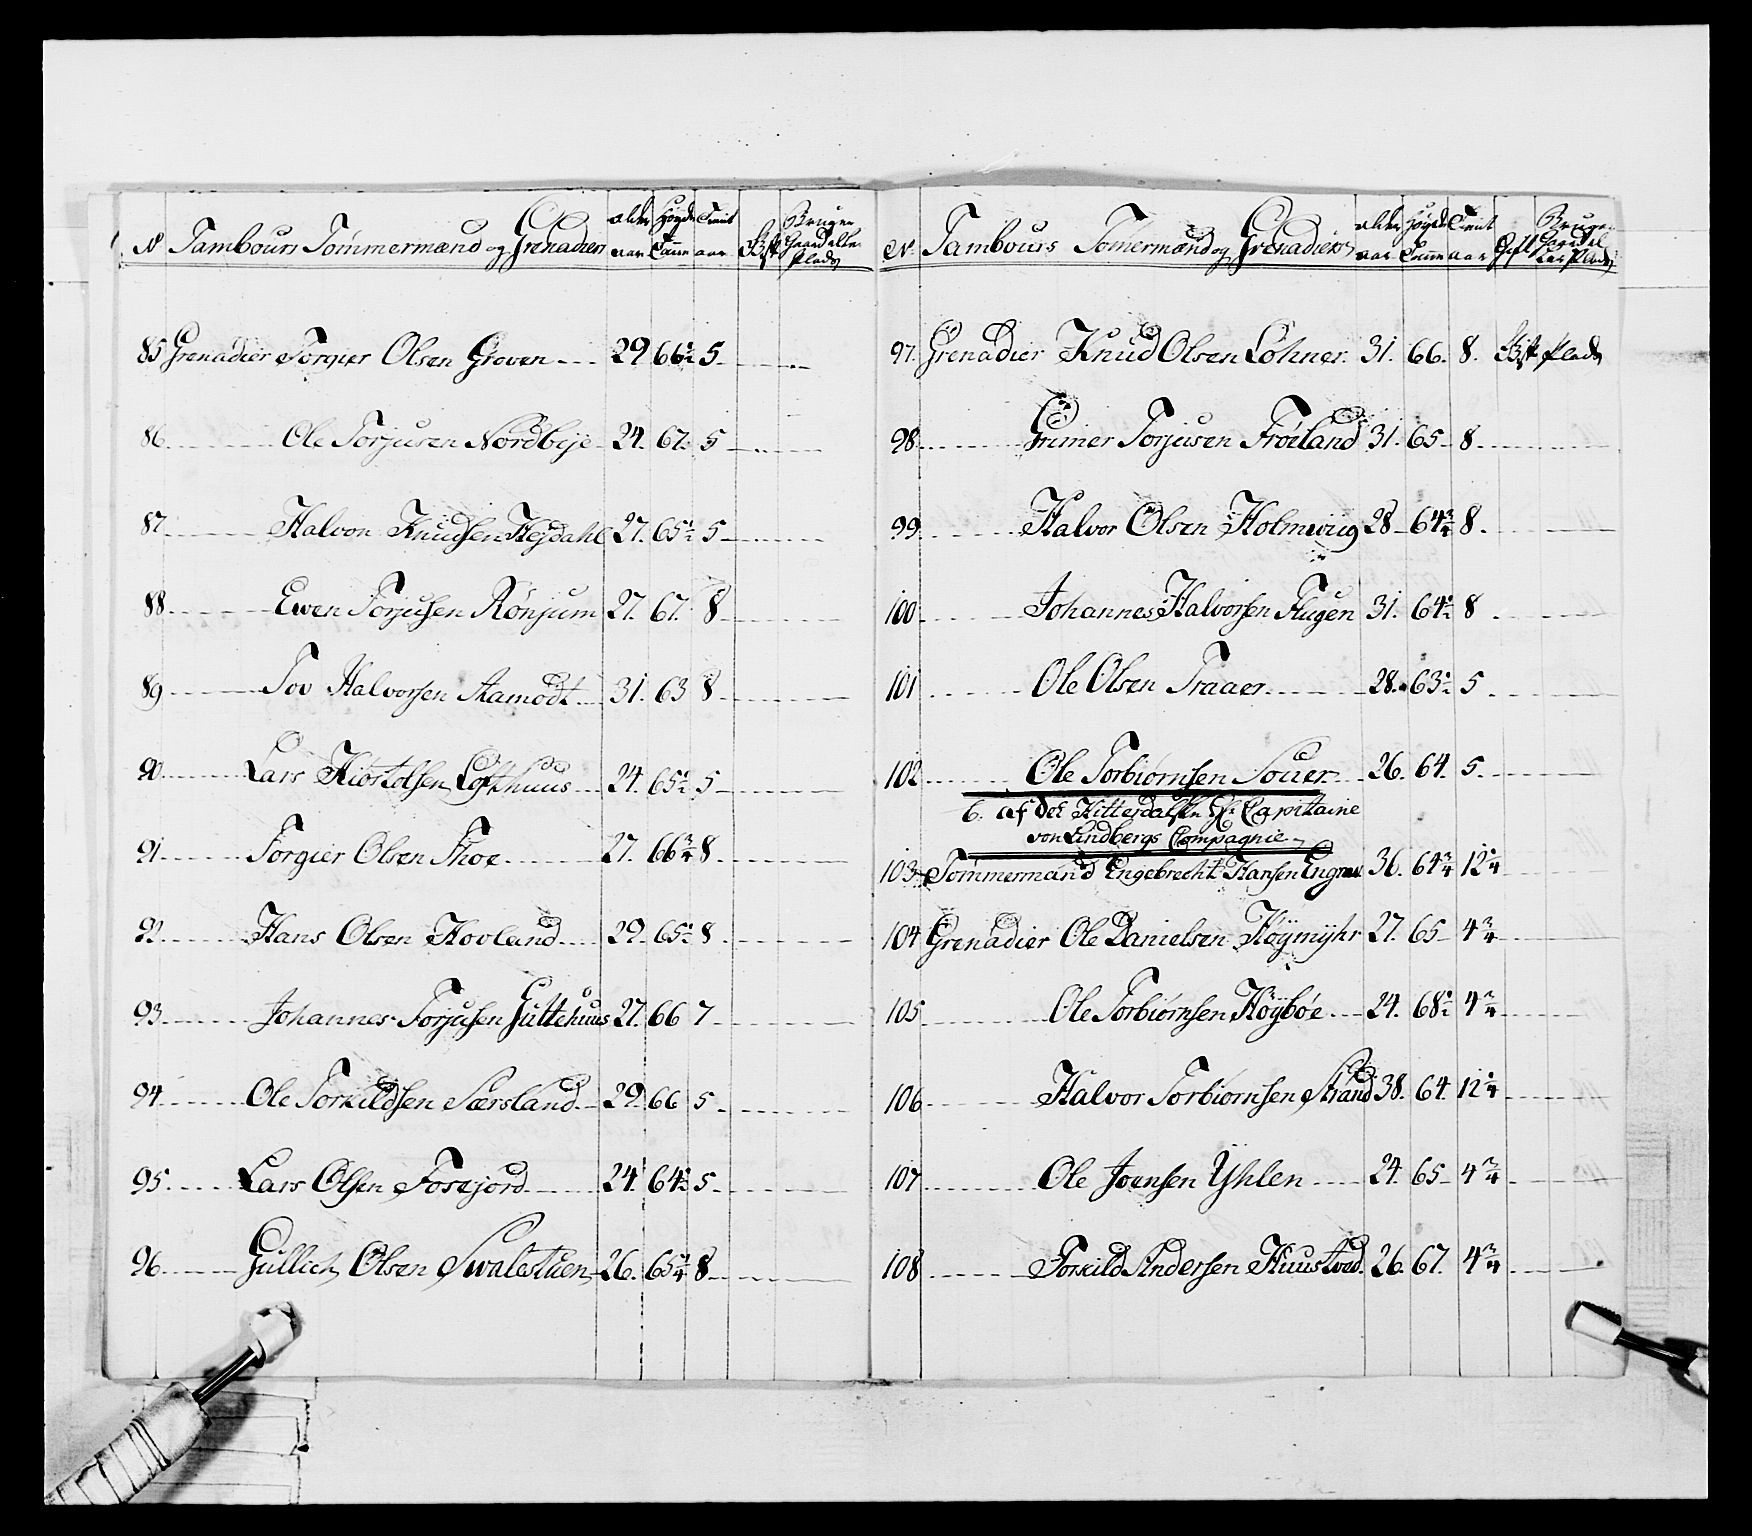 No Tambours Tømmermænd og Grenadiers alder aar Høyde Tomme Tient aar Gift Bruger Gaard eller Plads
85 Grenadier Torgier Olsen Groven 29 66½ 5
86 Ole Torjusen Nordbye 24. 67. 5
87 Halvon Knudsen Hejdahl 27. 65½ 5
88 Ewen Torjusen Rönjum 27. 67. 8
89 Tov Halvorsen Aamodt 31. 63 8
90 Lars Kiostolsen Lofthuus 24. 65½ 5
91 Torgier Olsen Thoe 27. 66¾ 8
92 Hans Olsen Hovland 29. 65½ 8
93 Johannes Torjusen Juttehuus 27. 66 7
94 Ole Torkildsen Særsland 29. 66 5
95 Lars Olsen Fosejord 24. 64½ 5
96 Gullich Olsen Swalestuen 26. 65¾ 8
No Tambours Tømermænd og Grenadiers alder aar Høyde Tomme Tient aar Gift Bruger Gaard eller Plads
97. Grenadier Knud Olsen Löhner 31. 66. 8. Gift Plads
98 Grimer Torjusen Fröland 31. 65 8
99 Halvor Olsen Holmwig 28 64¾ 8.
100 Johannes Halvorsen Haugen 31. 64½ 8
101 Ole Olsen Traaer 28. 63½ 5
102 Ole Torbiörnsen Souer 26. 64. 5.
6. af det Hitterdalske Hr Capitaine
von Lindbergs Compagnie
103 Tömmermand Engebrecht Hansen Engrav 36. 64¾ 12¼
104 Grenadier Ole Danielsen Höymyhr 27. 65 4¾
105 Ole Torbiörnsen Höyböe 24. 68½ 4¾
106 Halvor Torbiörnsen Strand 38. 64 12¼
107 Ole Joensen Yhlen 24. 65 4¾
108 Torkild Andersen Huustved 26. 67. 4¾